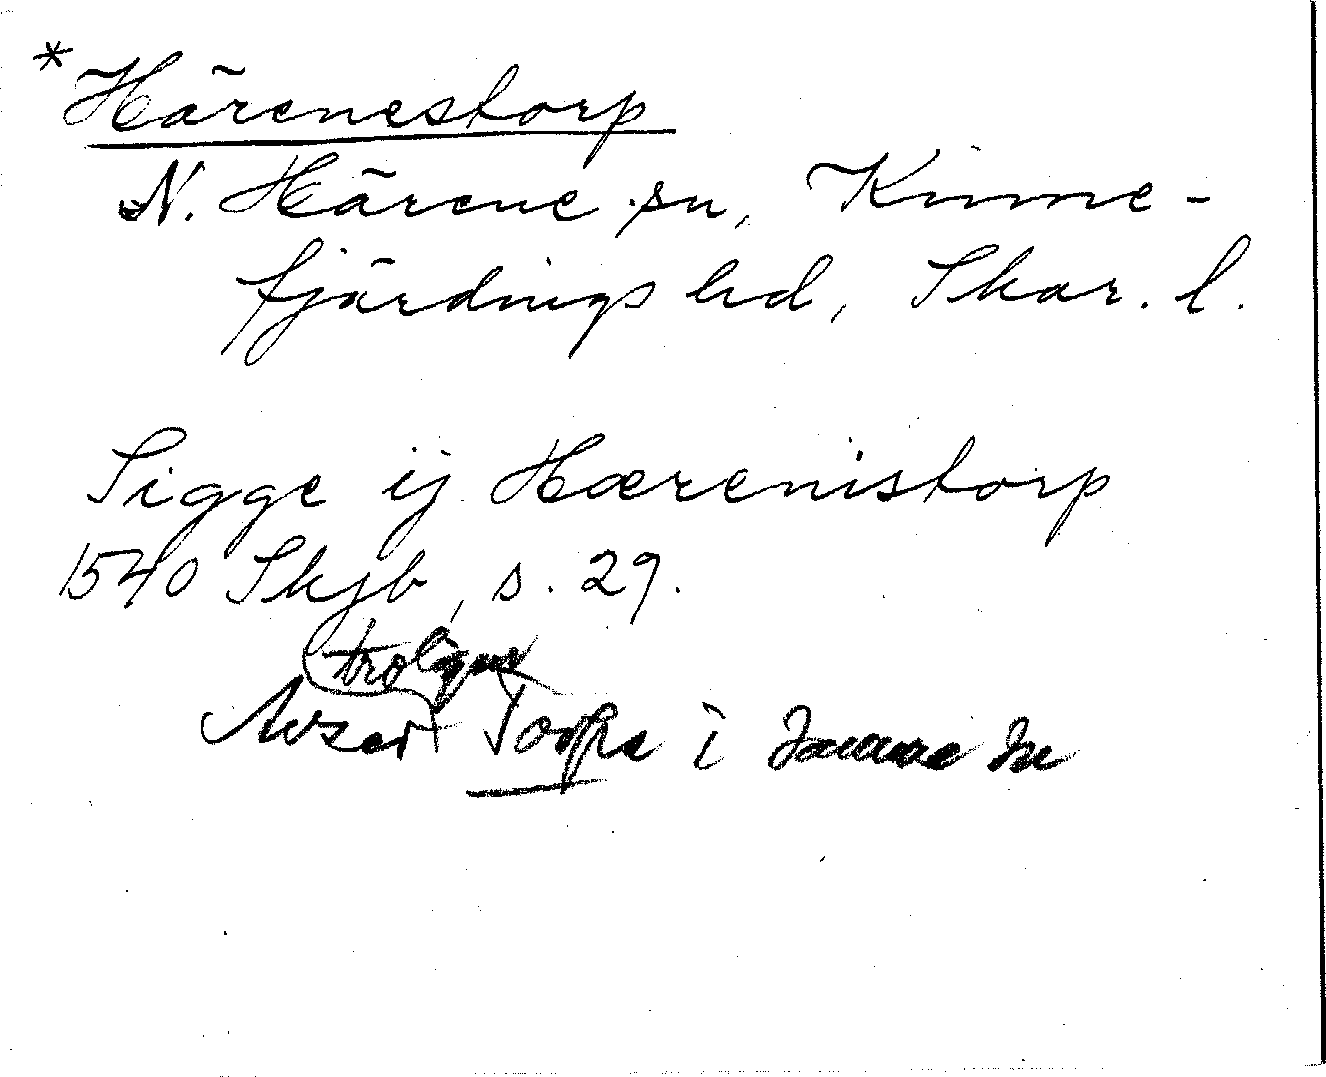 * Härenestorp
N. Härene sn, Kinne-
fjärdings hd, Skar. l.
Sigge ij Hærenistorp
1540 Skjb, s. 29.
troligen
Avser Torpa i samme sn